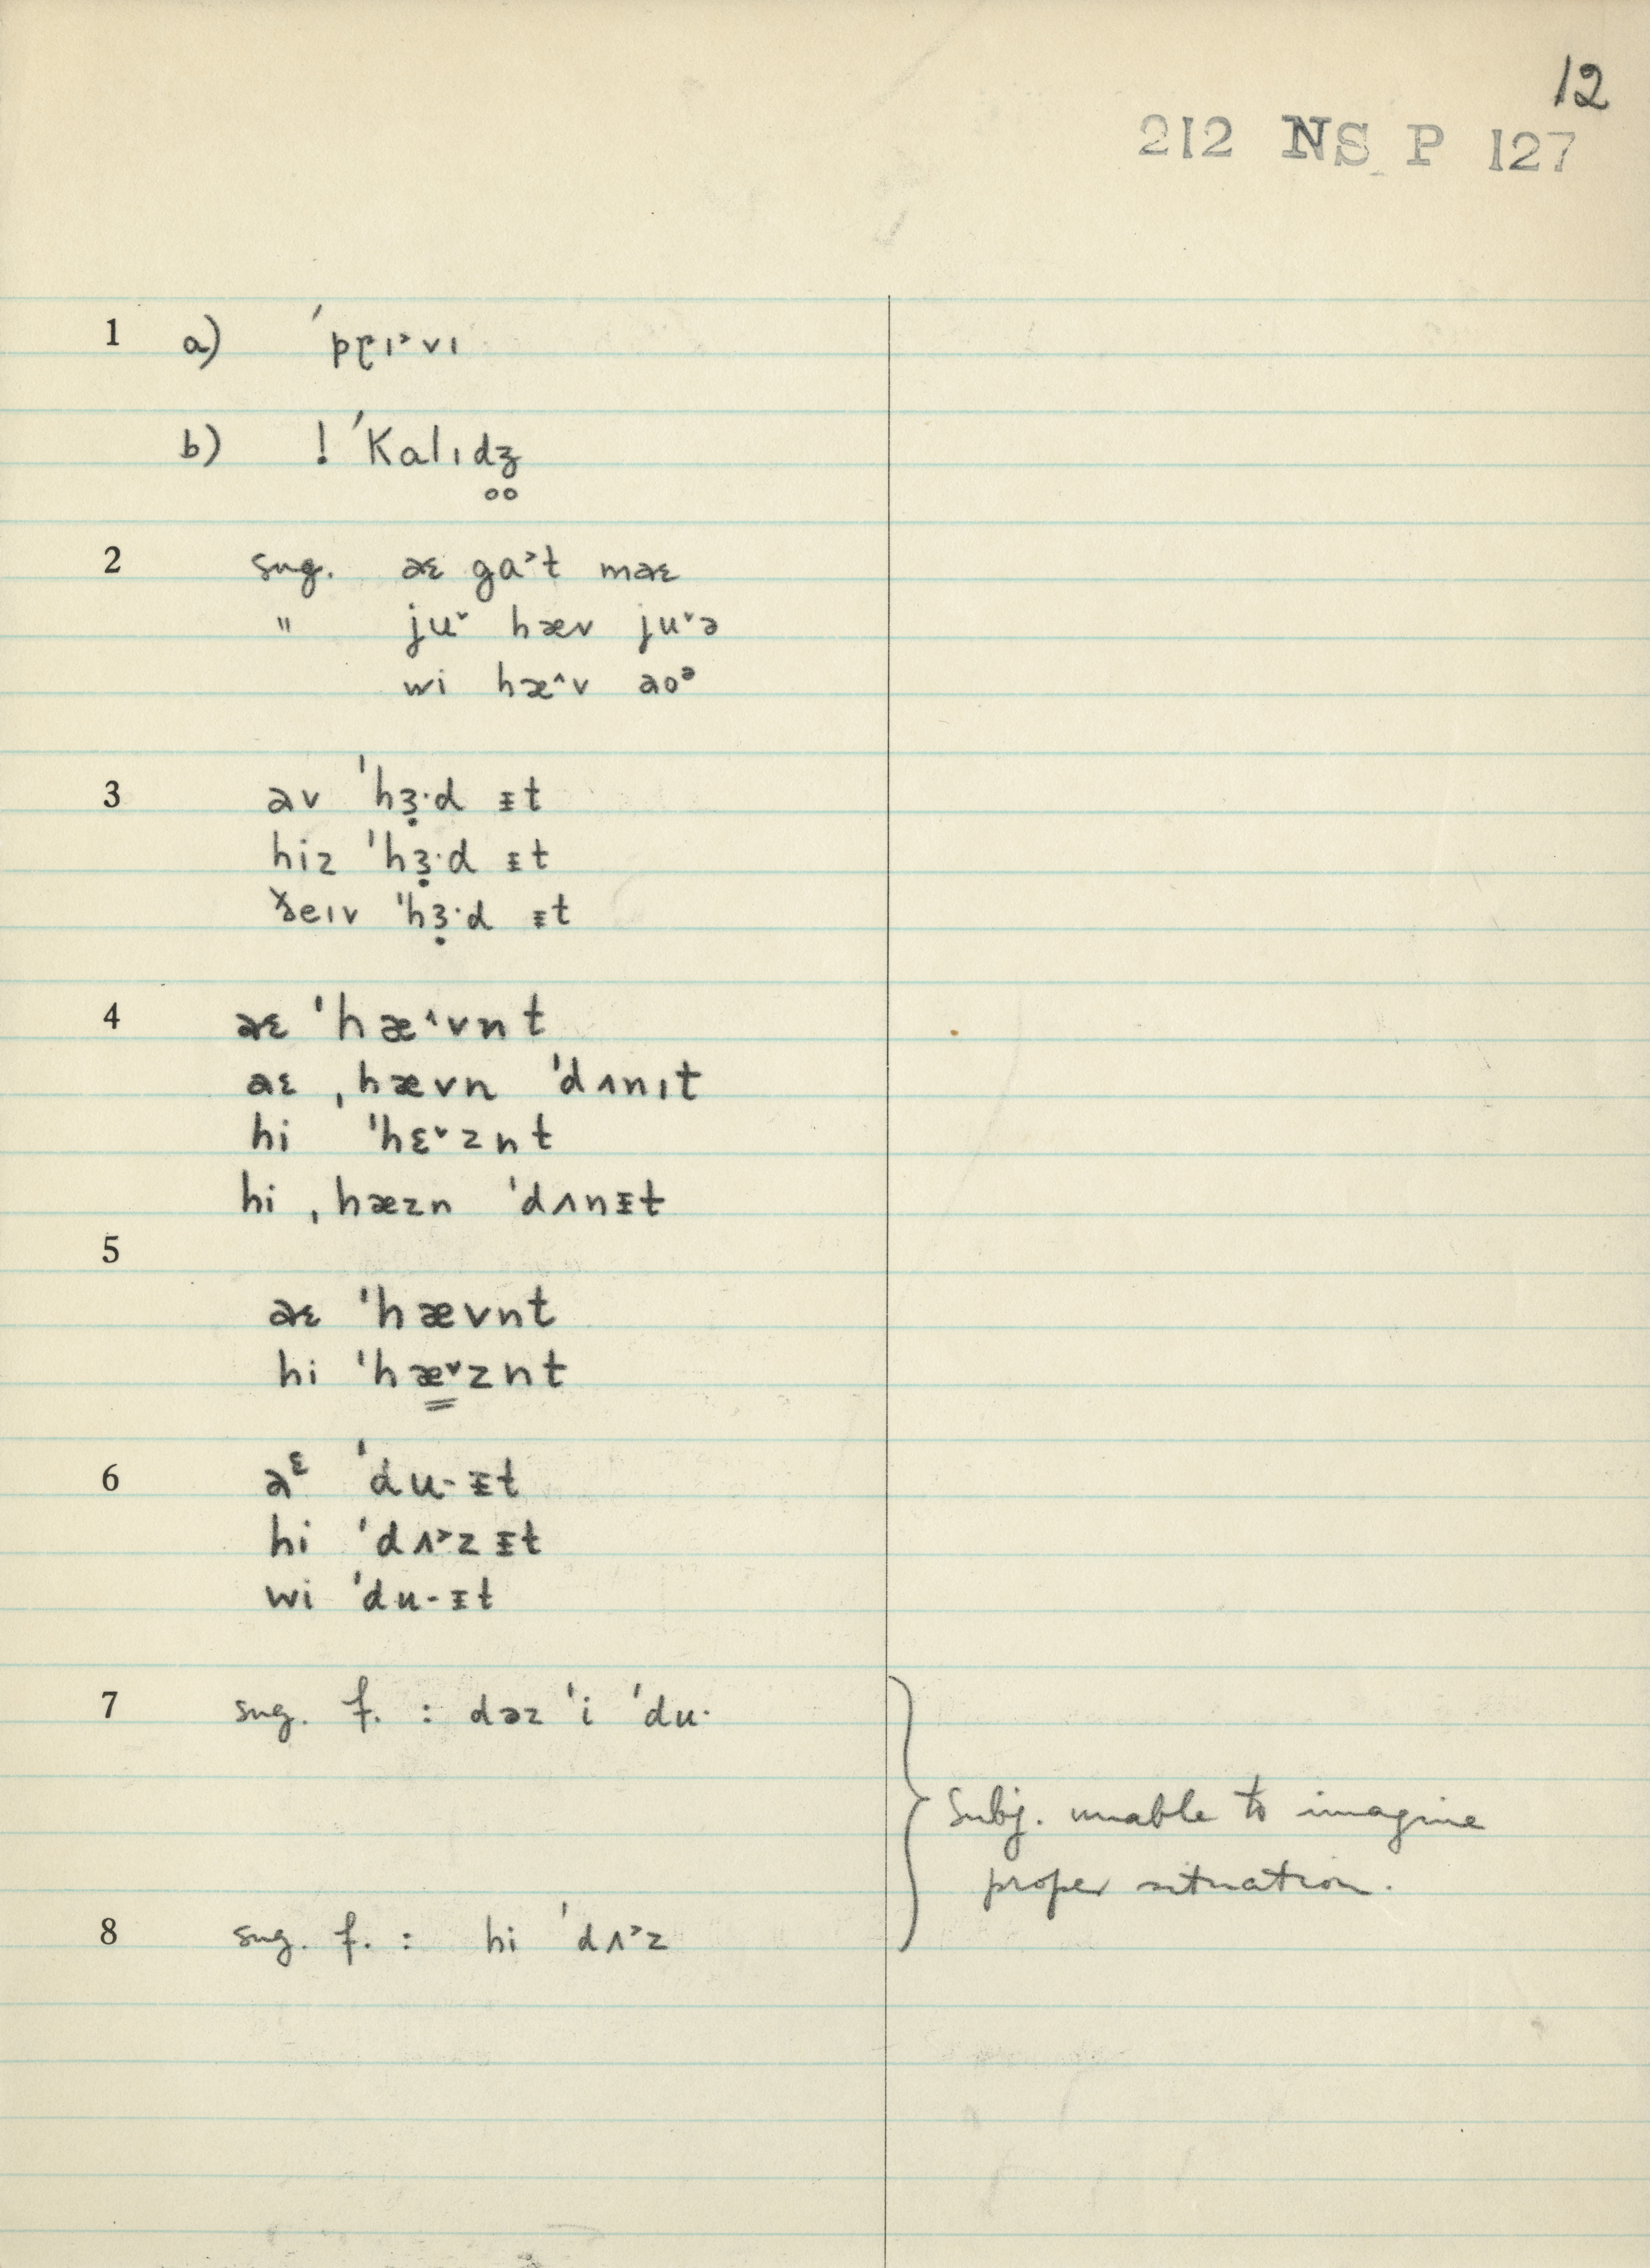 12
212 NS P 127
1 a) ˈpɽɪ˃vɪ
b) ! ˈkalɪdʒ̥
2 sug. aɛ ga˃t maɛ
" ju˅ hæv ju˅ə
wi hæ˄v aoᵊ
3 av ˈhɜ̣·d ᵻt
hiz ˈhɜ̣·d ᵻt
ðeɪv ˈhɜ̣·d ᵻt
4 aɛ ˈhæ˄vnt
aɛ ˌhævn ˈdʌnɪt
hi ˈhɛ˅znt
hi ˌhæzn ˈdʌnᵻt
5
aɛ ˈhævnt
hi ˈhæ˅znt
6 aᵋ ˈdu· ᵻt
hi ˈdʌ˃z ᵻt
wi ˈdu· ᵻt
7 sug. f. : dəz ˈi ˈdu·
Subj. unable to imagine
proper situation.
8 sug. f. : hi ˈdʌ˃z